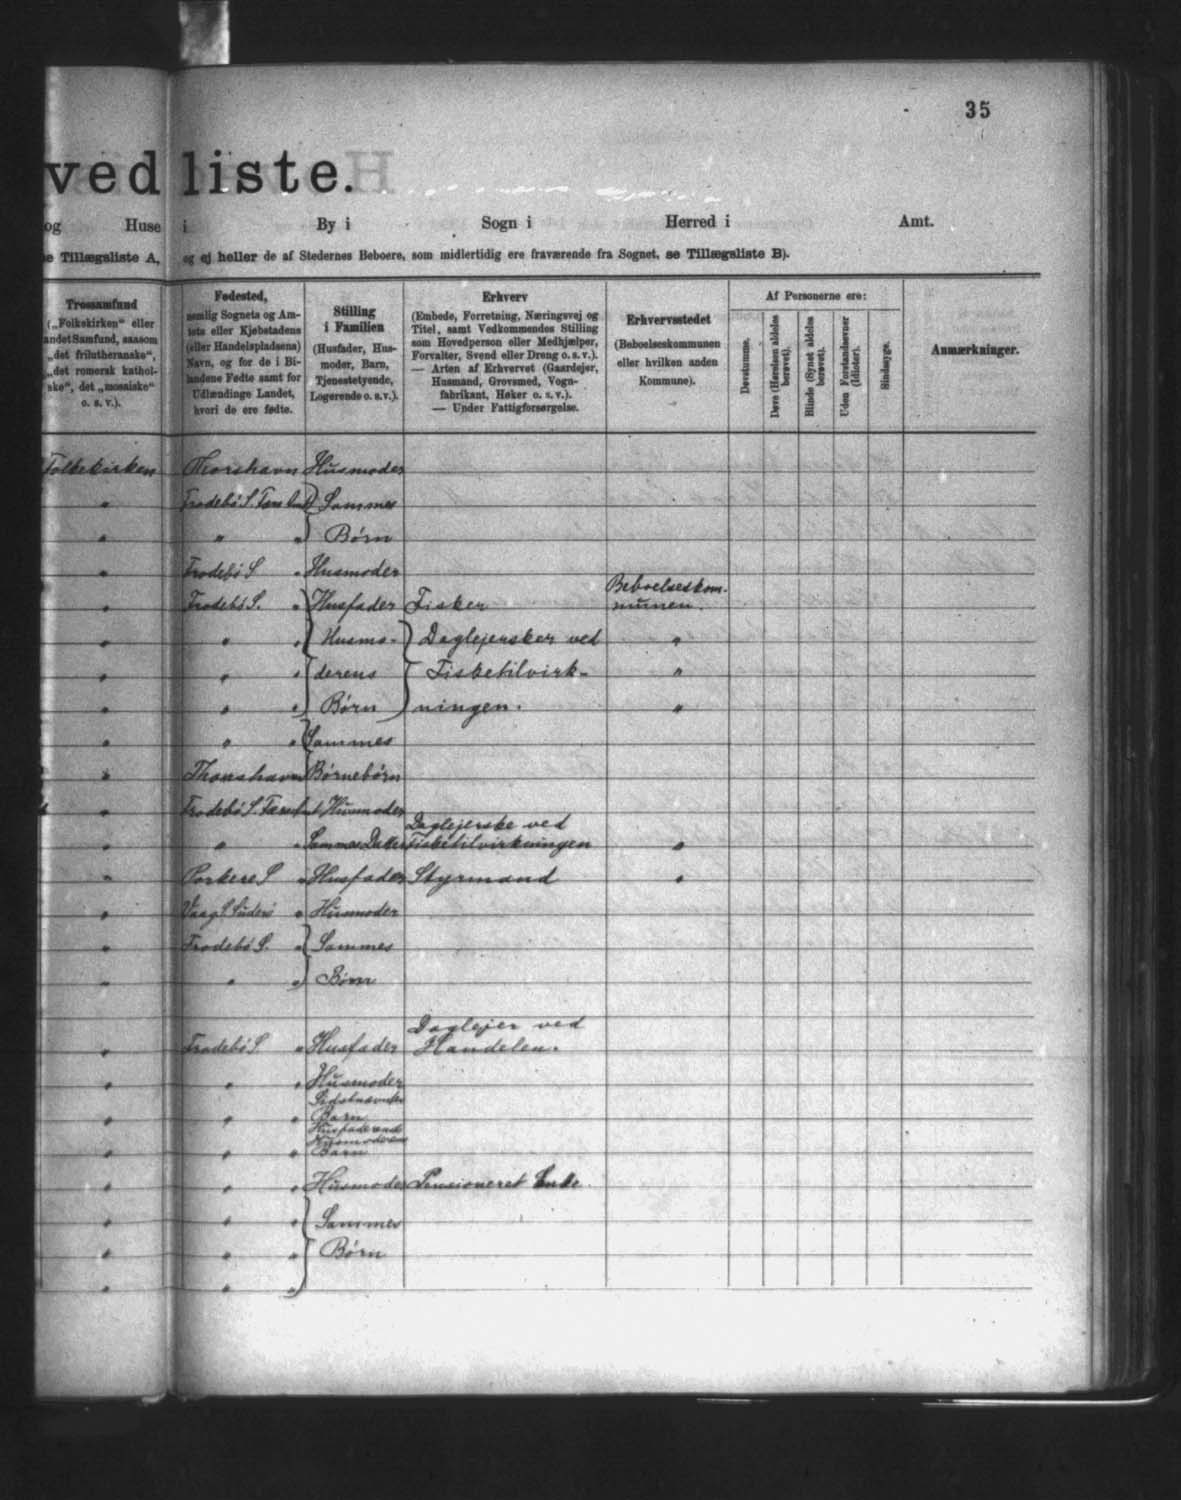 35
ved liste.
og Huse i By i Sogn i Herred i Amt.
e Tillægsliste A, og ej heller de af Stedernes Beboere, som midlertidig ere fraværende fra Sognet, se Tillægsliste B).
Trossamfund
(„Folkekirken“ eller
andet Samfund, saasom
„det frilutheranske“,
„det romersk kathol-
ske“, det „mosaiske“
o. s. v.).
Fødested,
nemlig Sognets og Am-
tets eller Kjøbstadens
(eller Handelspladsens)
Navn, og for de i Bi-
landene Fødte samt for
Udlændinge Landet,
hvori de ere fødte.
Stilling
i Familien
(Husfader, Hus-
moder, Barn,
Tjenestetyende,
Logerende o. s. v.).
Erhverv
(Embede, Forretning, Næringsvej og
Titel, samt Vedkommendes Stilling
som Hovedperson eller Medhjælper,
Forvalter, Svend eller Dreng o. s. v.).
— Arten af Erhvervet (Gaardejer,
Husmand, Grovsmed, Vogn-
fabrikant, Høker o. s. v.).
— Under Fattigforsørgelse.
Erhvervsstedet
(Beboelseskommunen
eller hvilken anden
Kommune).
Af Personerne ere:
Døvstumme.
Døve (Hørelsen aldeles
berøvet).
Blinde (Synet aldeles
berøvet).
Uden Forstandsevner
(Idioter).
Sindssyge.
Anmærkninger.
Folkekirken Thorshavn Husmoder
" Frodebø S. Færø Amt Sammes
" " " Børn
" Frodebø S " Husmoder
" Frodebø S. " Husfader Fisker Beboelseskom-
munen.
" " " Husmo- Daglejersker ved "
" " " derens Fisketilvirk- "
" " " Børn ningen. "
" " " Sammes
" Thorshavn Børnebørn
" Frodebø S. Færø Amt Husmoder
" " " Sammes Datter Daglejerske ved
Fisketilvirkningen "
" Porkere S " Husfader Styrmand "
" Vaag S Suderø " Husmoder
" Frodebø S. " Sammes
" " " Børn
" Frodebø S. " Husfader Daglejer ved
Handelen.
" " " Husmoder
Sidstnævntes
" " " Barn
Husfaderens
Husmoderens
" " " Barn
" " " Husmoder Pensioneret Enke.
" " " Sammes
" " " Børn
" " "